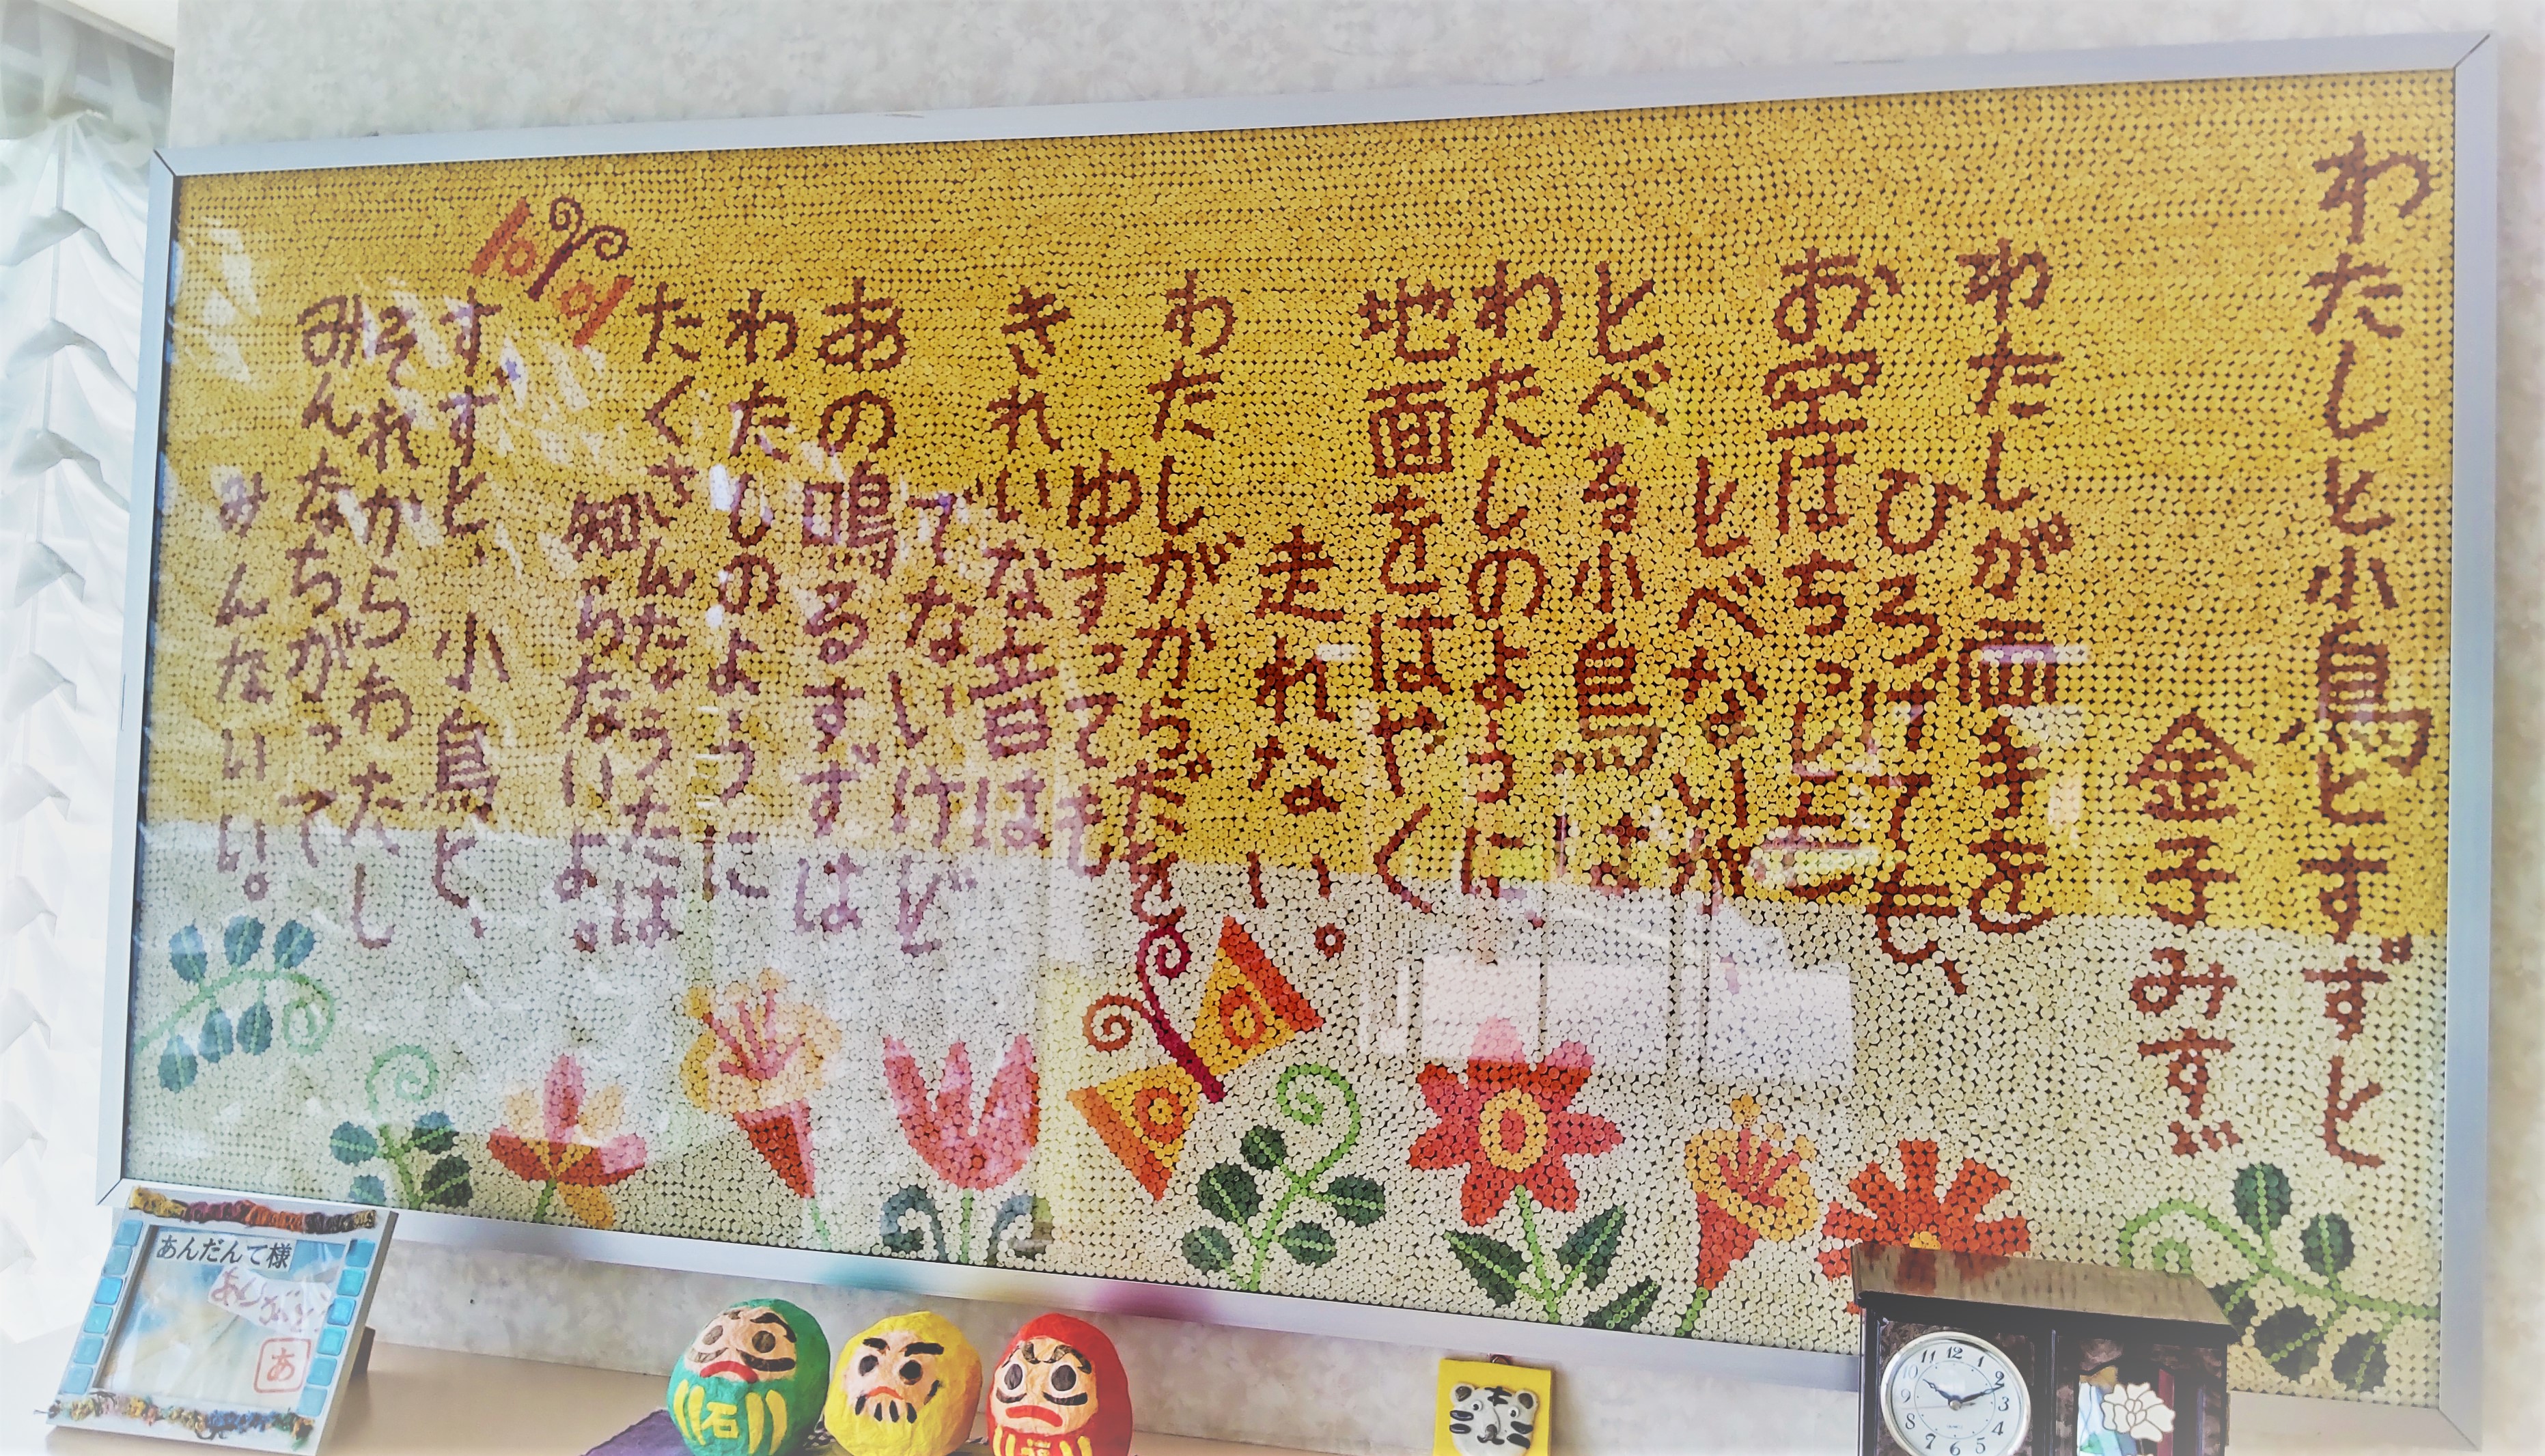 わたしと小鳥とすずと
金子みすゞ
わたしが両手を
ひろげても、
お空はちっとも
とべないが
とべる小鳥は
わたしのように
地面をはやく
走れない。
わたしがからだを
ゆすっても
きれいな音は
でないけど
あの鳴るすずは
わたしのように
たくさんなうたは
知らないよ。
すずと、小鳥と、
それからわたし
みんなちがって
みんないい。
あんだんて様
あ
石